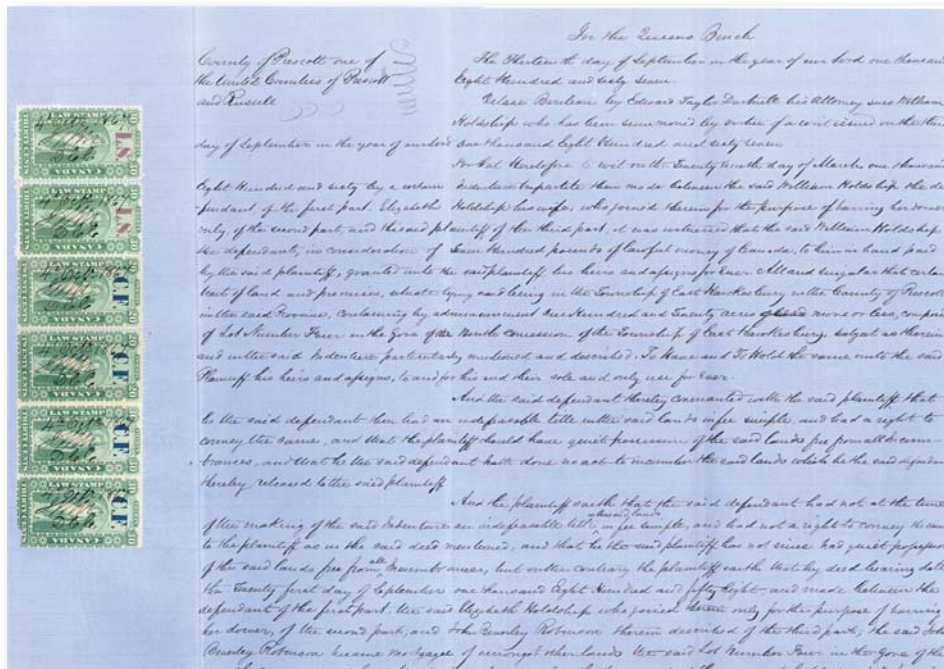 In the Queens Bench
County of Prescott one of
the United Counties of Prescott
and Russell
The Thirteenth day of September in the year of our Lord one thousand
Eight Hundred and sixty seven
by Edward Taylor Dartnell his Attorney sues William
Holdship who has been summoned by virtue of a writ issued on the third
day of September in the year of our Lord one thousand Eight Hundred and sixty seven
For that Heretofore to wit on the Twenty day of March one thousand
Eight Hundred and sixty by a certain Indenture tripartite then made between the said William Holdship the de
fendant of the first part. Elizabeth Holdship his wife, who joined therein for the purpose of barring her dower
only, of the second part, and the said plaintiff of the third part, it was witnessed that the said William Holdship
the defendant, in consideration of Hundred pounds of lawful money of Canada, to him in hand paid
by the said plaintiff, granted unto the said plaintiff his heirs and assigns for Ever All and singular that certain
tract of land and premises, situate lying and being in the Township of East Hawkesbury in the County of Prescott
in the said Province, containing by admeasurement One Hundred and Twenty acres more or less, compos
of Lot Number Four in the Gore of the concession of the Township of East Hawkesbury, as therein
and in the said Indenture particularly mentioned and described, To Have and To Hold the same unto the said
Plaintiff his heirs and assigns, to and for his and their sole and only use for Ever.
And the said defendant thereby covenanted with the said plaintiff that
he the said defendant then had an indefeasible title in the said lands in fee simple, and had a right to
convey the same, and that the plaintiff should have quiet possession of the said lands free from all Encum
brances, and that he the said defendant hath done no act to encumber the said lands which he the said defendant
thereby released to the said plaintiff
And the plaintiff saith that the said defendant had not at the time
of the making of the said Indenture an indefeasible title in fee simple, and had not a right to convey the same
to the plaintiff as in the said deed mentioned, and that he the said plaintiff has not since had quiet possession
of the said lands free from all Incumbrances, but on the contrary the plaintiff saith that by deed bearing date
the Twenty first day of September one thousand Eight Hundred and fifty Eight and made between the
defendant of the first part the said Elizabeth Holdship who joined therein only for the purpose of barring
her dower, of the second part, and John Beverley Robinson therein described of the third part, the said John
Beverley Robinson became mortgagee of amongst other lands the said Lot Number Four in the Gore of the
LAW STAMP
CANADA
LS
LAW STAMP
CANADA
LS
LAW STAMP
CANADA
CF
LAW STAMP
CANADA
CF
LAW STAMP
CANADA
CF
LAW STAMP
CANADA
CF